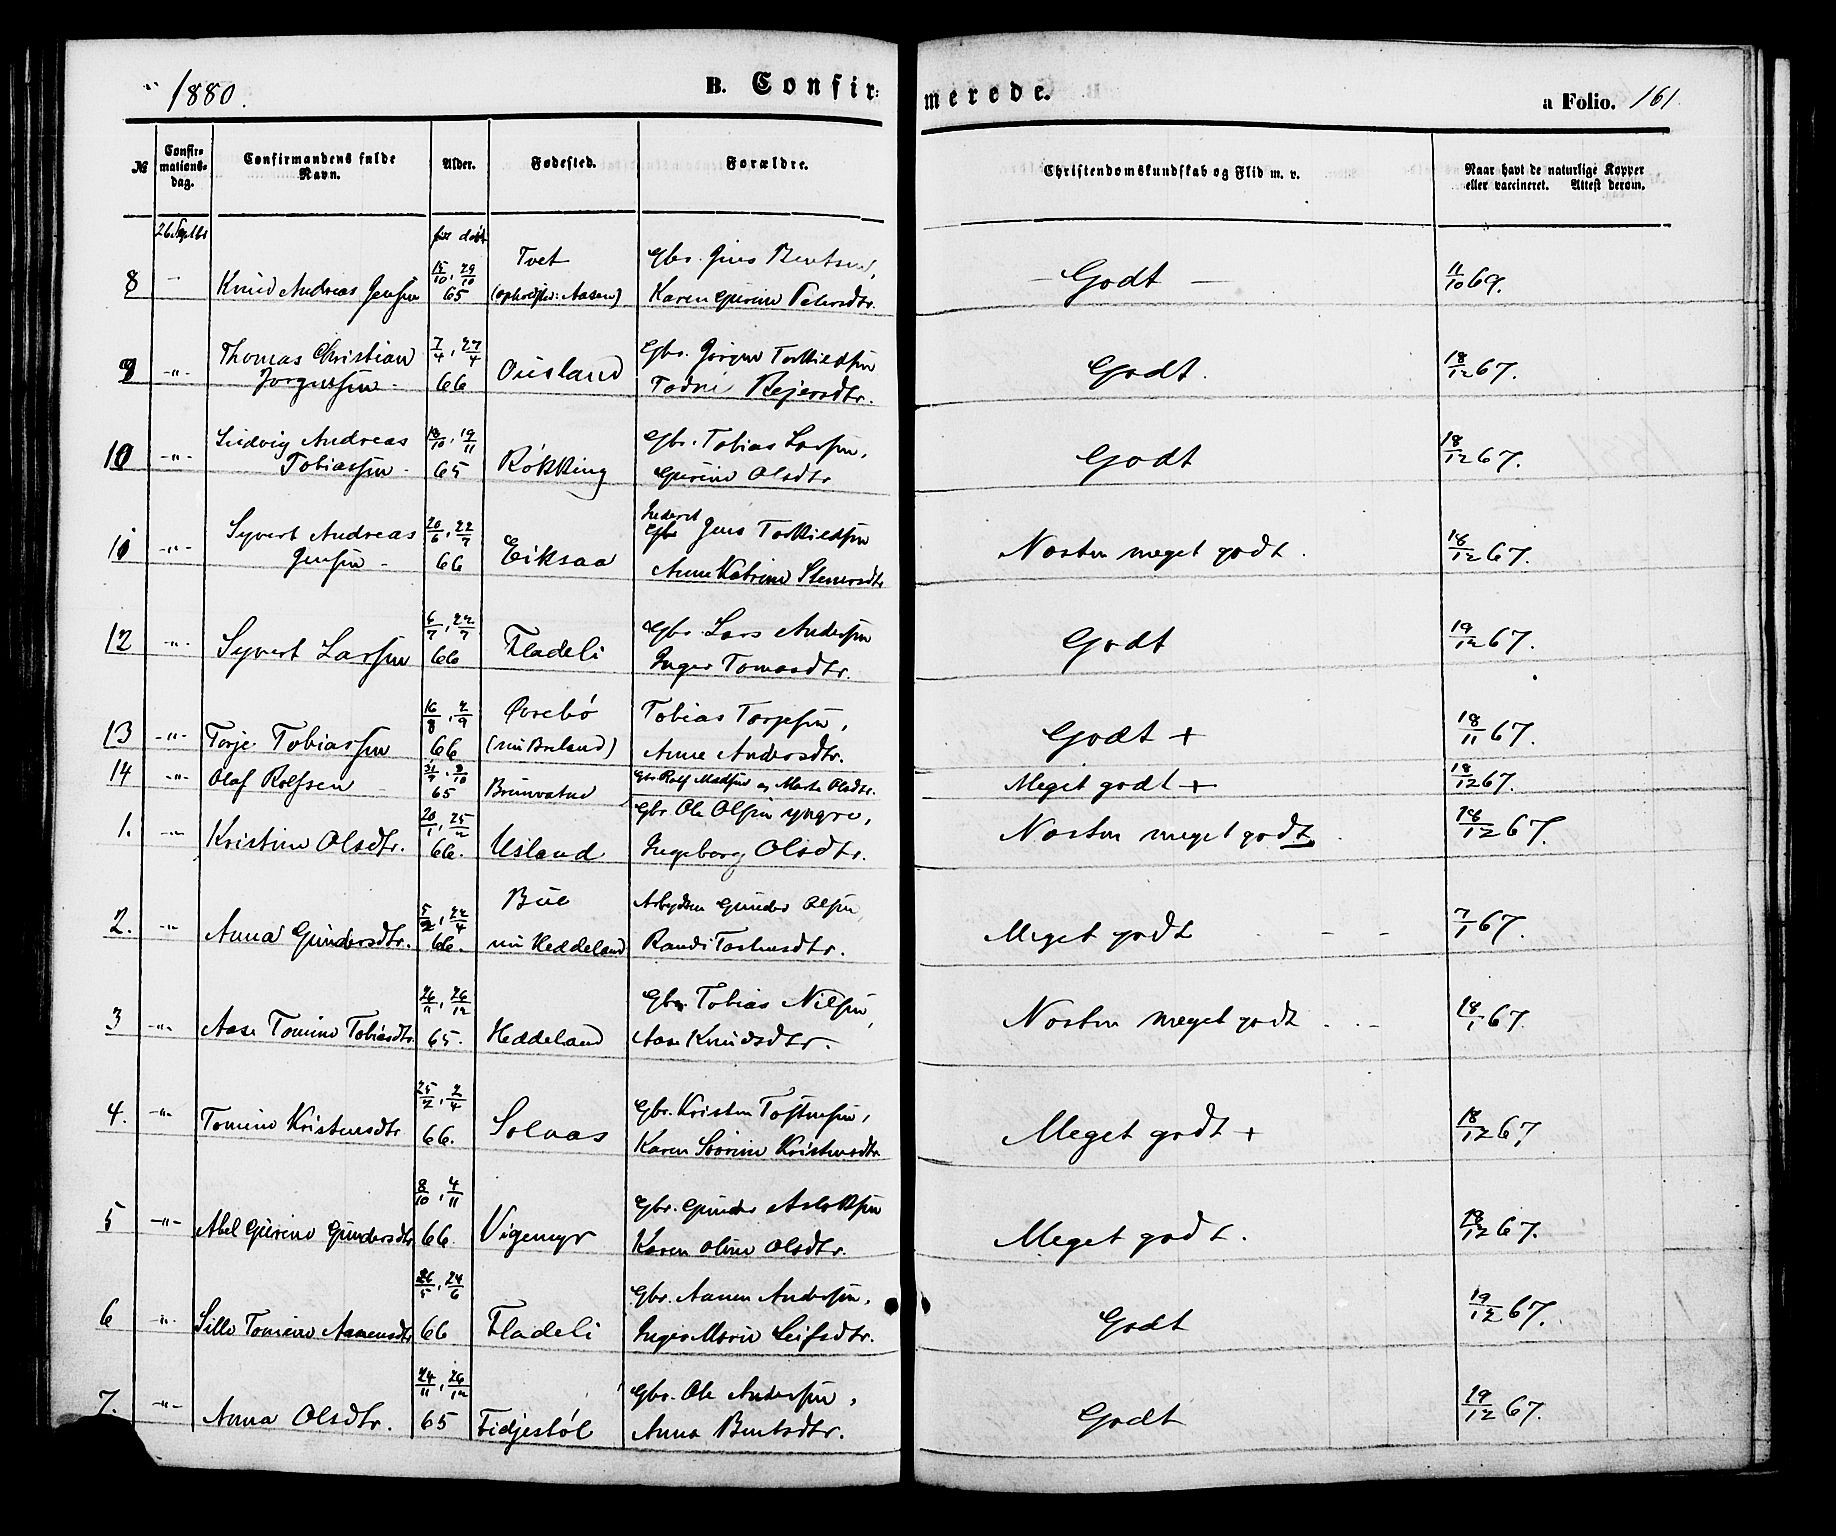 1880.
B. Confir-
merede.
a Folio. 161
№
Confir-
mations-
dag.
Confirmandens fulde
Navn.
Alder.
Fødested.
Forældre.
Christendomskundskab og Flid m. v.
Naar havt de naturlige Kopper
eller vaccineret. Attest derom.
26 Septbr
født døbt
8 - Knud Andreas Jensen 15/10, 29/10 65 Tvet Gbr. Jens Bentsen, Karen Gurine Petersdtr. - Godt - 11/10 69.
9 -"- Thomas Christian Jørgensen - 7/4, 27/4 66 Ousland Gbr. Jørgen Torkildsen Todni Rejersdtr. Godt. 18/12 67.
10 -"- Ludvig Andreas Tobiassen - 18/10, 19/11 65 Røkking Gbr. Tobias Larsen, Gurine Olsdtr Godt 18/12 67.
11 -"- Syvert Andreas Jensen - 20/6, 22/7 66 Eiksaa Gbr Jens Torkildsen Anne Katrine Stenersdtr Næsten meget godt. 18/12 67.
12 -"- Syvert Larsen 6/7, 22/7 66 Fladeli Gbr. Lars Andersen Inger Tomasdtr. Godt 19/12 67.
13 -"- Torje Tobiassen 16/8, 2/9 66 Øvrebø (nu Breland) Tobias Torjesen, Anne Andersdtr. Godt + 18/11 67.
14 -"- Olaf Rolfsen - 31/7, 8/10 65 Brunvatne Gbr Rolf Madsen og Marte Olsdtr. Meget godt + 18/12 67.
1. -"- Kristine Olsdtr. 20/1, 25/2 66. Usland Gbr. Ole Olsen yngre, Ingeborg Olsdtr. Næsten meget godt. 18/12 67.
2. -"- Anna Gundersdtr. 5/2, 22/4 66. Bue nu Heddeland Arbejdsm Gunder Olsen, Randi Tostensdtr. Meget godt - - 7/1 67.
3 -"- Aase Tomine Tobiasdtr. 26/11, 26/12 65. Heddeland Gbr. Tobias Nilsen, Aase Knudsdtr. Næsten meget godt . - 18/1 67.
4. -"- Tomine Kristensdtr 25/2, 2/4 66. Solaas Gbr. Kristen Tostensen, Karen Sørine Kristensdtr Meget godt + 18/12 67.
5 -"- Abel Gurine Gundersdtr 8/10, 4/11 66. Vigemyr Gbr. Gunder Aslaksen Karen Oline Olsdtr. Meget godt. 18/12 67.
6 -"- Sille Tomine Aanensdtr 26/5, 24/6 66 Fladeli Gbr. Aanen Andersen, Inger Marie Leifsdtr. Godt 19/12 67.
7. -"- Anna Olsdtr. 24/11, 26/12 65 Fidjestøl Gbr. Ole Andersen, Anna Bentsdtr. Godt 19/12 67.